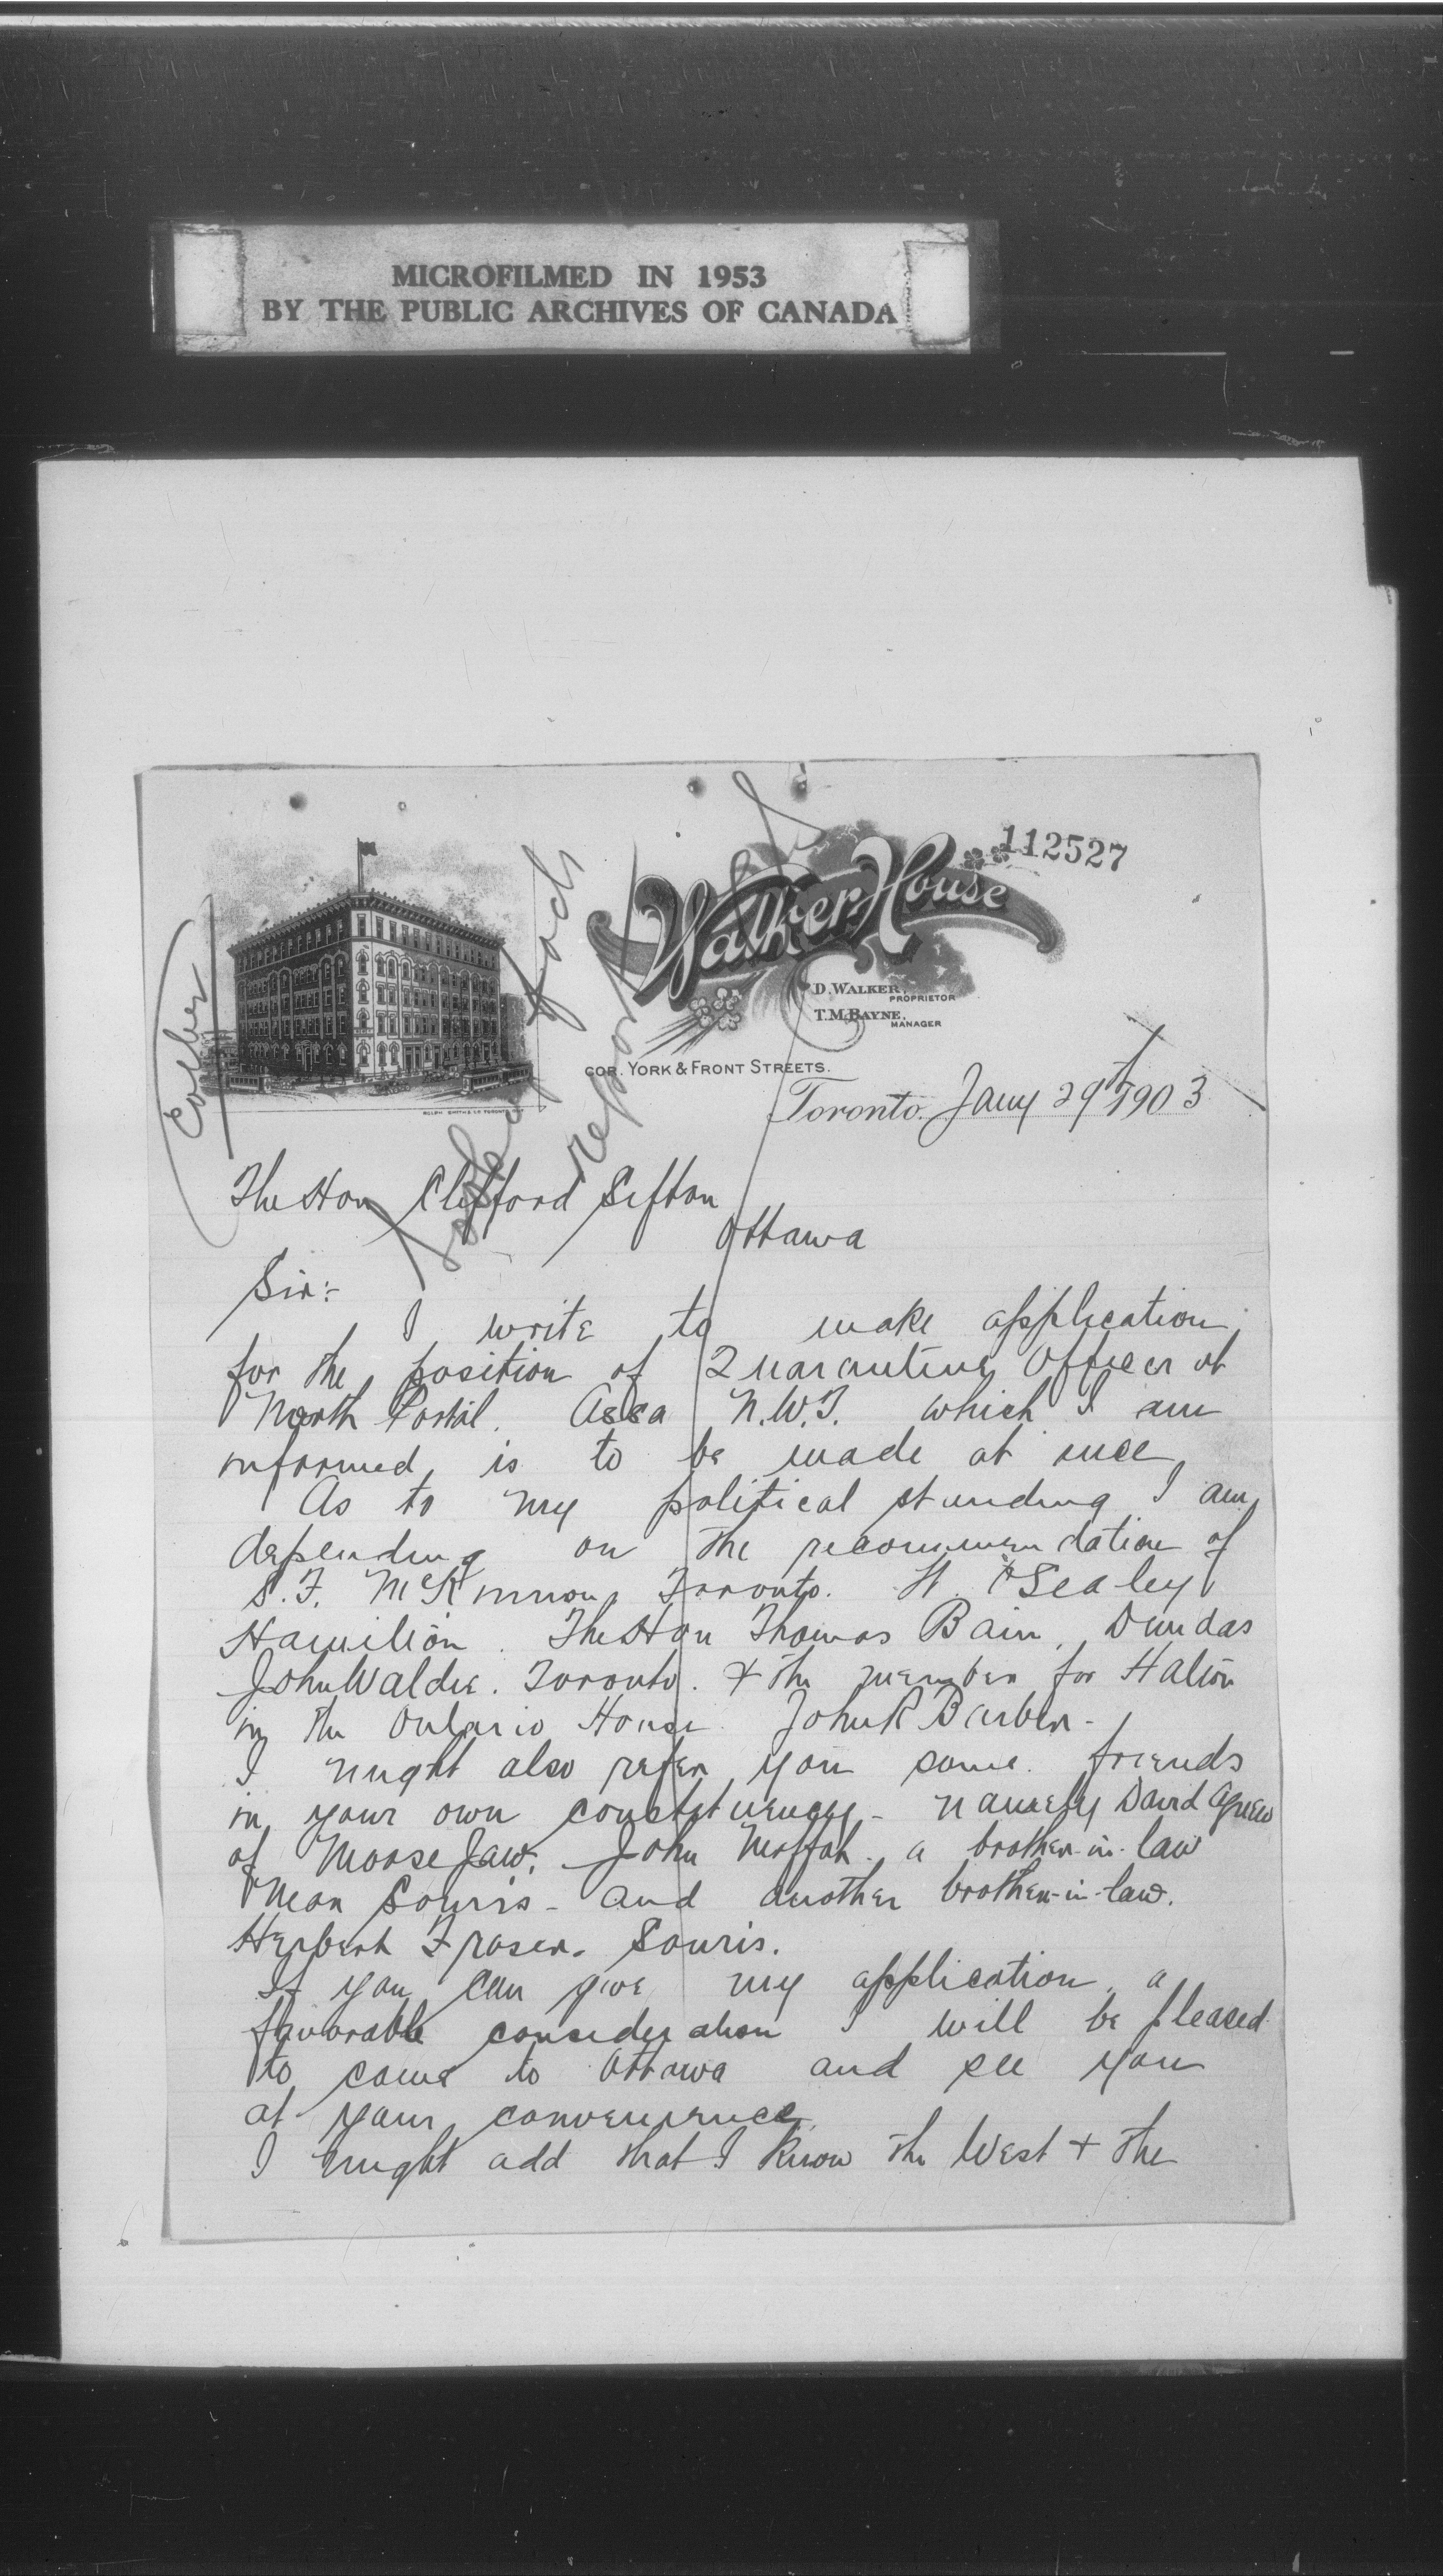 MICROFILMED IN 1953
BY THE PUBLIC ARCHIVES OF CANADA
112527
Walker House
D. WALKER,
PROPRIETOR
T.M. BAYNE,
MANAGER
COR. YORK & FRONT STREETS.
Toronto. Jany 29th 1903
The Hon Clifford Sifton
Ottawa
Sir:-
I write to make application
for the position of Quarantine Officer at
North Portal. Assa N.W.T. which I am
informed, is to be made at once
As to my political standing I am
depending on the recommendation of
S. F. McKinnon, Toronto. W. Sealey
Hamilton. The Hon Thomas Bain, Dundas
John Waldie. Toronto. & the member for Halton
in the Ontario House John R Barber -
I might also refer you some friends
in your own constituency - namely David Agnew
of Moose Jaw. John Moffat. a brother-in-law
Near Souris - and another brother-in-law.
Herbert Fraser. Souris.
If you can give my application, a
favorable consideration I will be pleased
to come to Ottawa and see you
at your convenience
I might add that I know the West + the